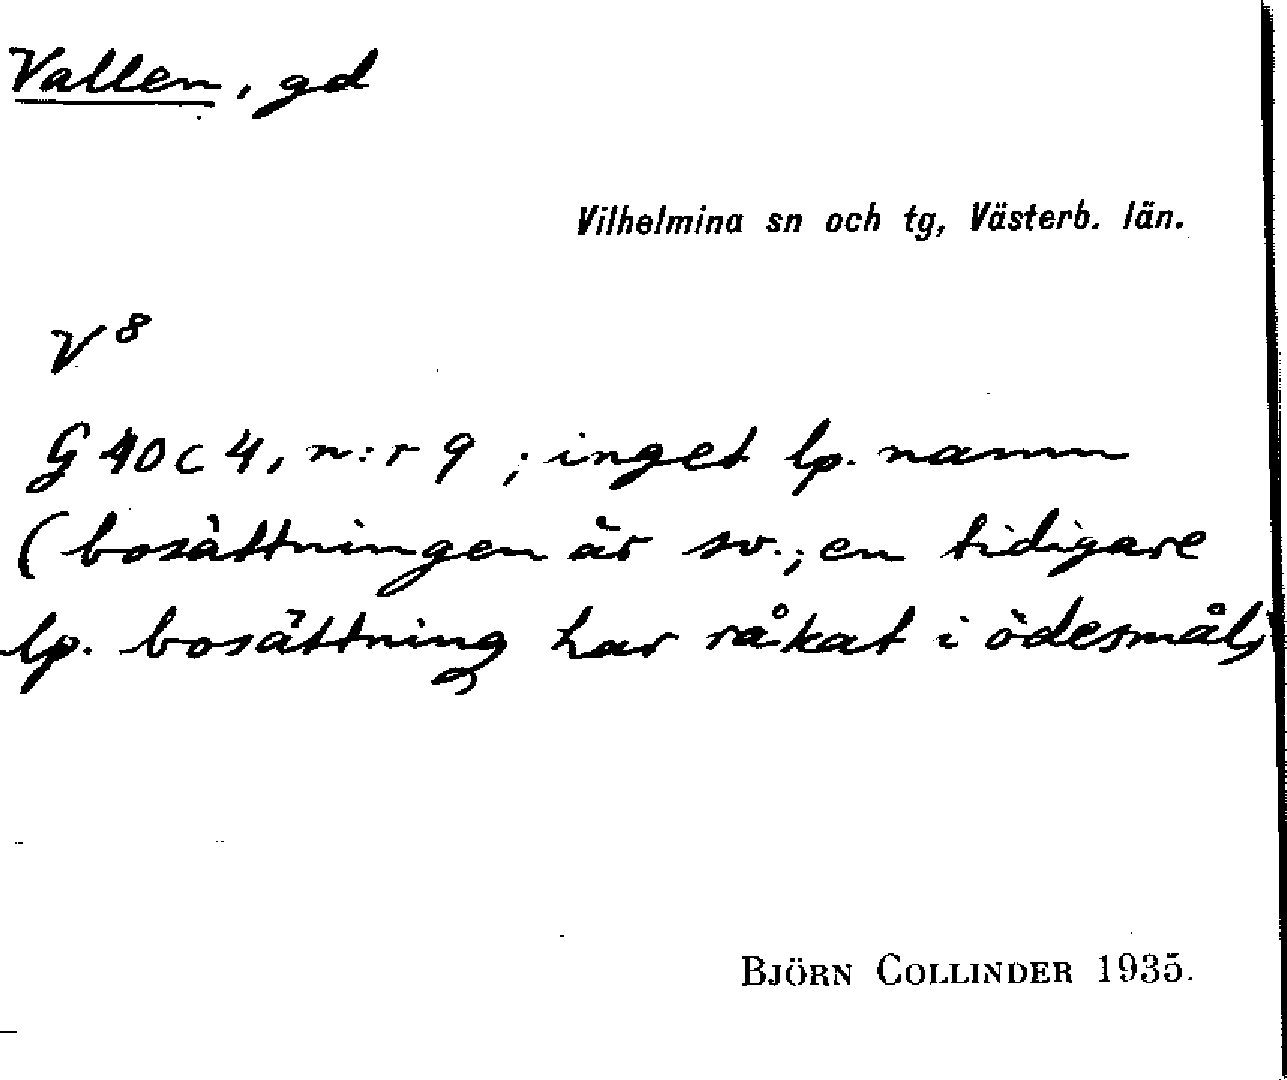 Vallen, gd
Vilhelmina sn och tg, Västerb. län.
V 8
G 40 c 4, n:r 9 ; inget lp. namn
(bosättningen är sv.; en tidigare
lp. bosättning har råkat i ödesmål)
BJÖRN COLLINDER 1935.